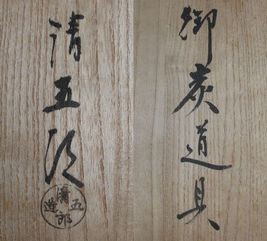 御炭道具
清五郎
清五郎造